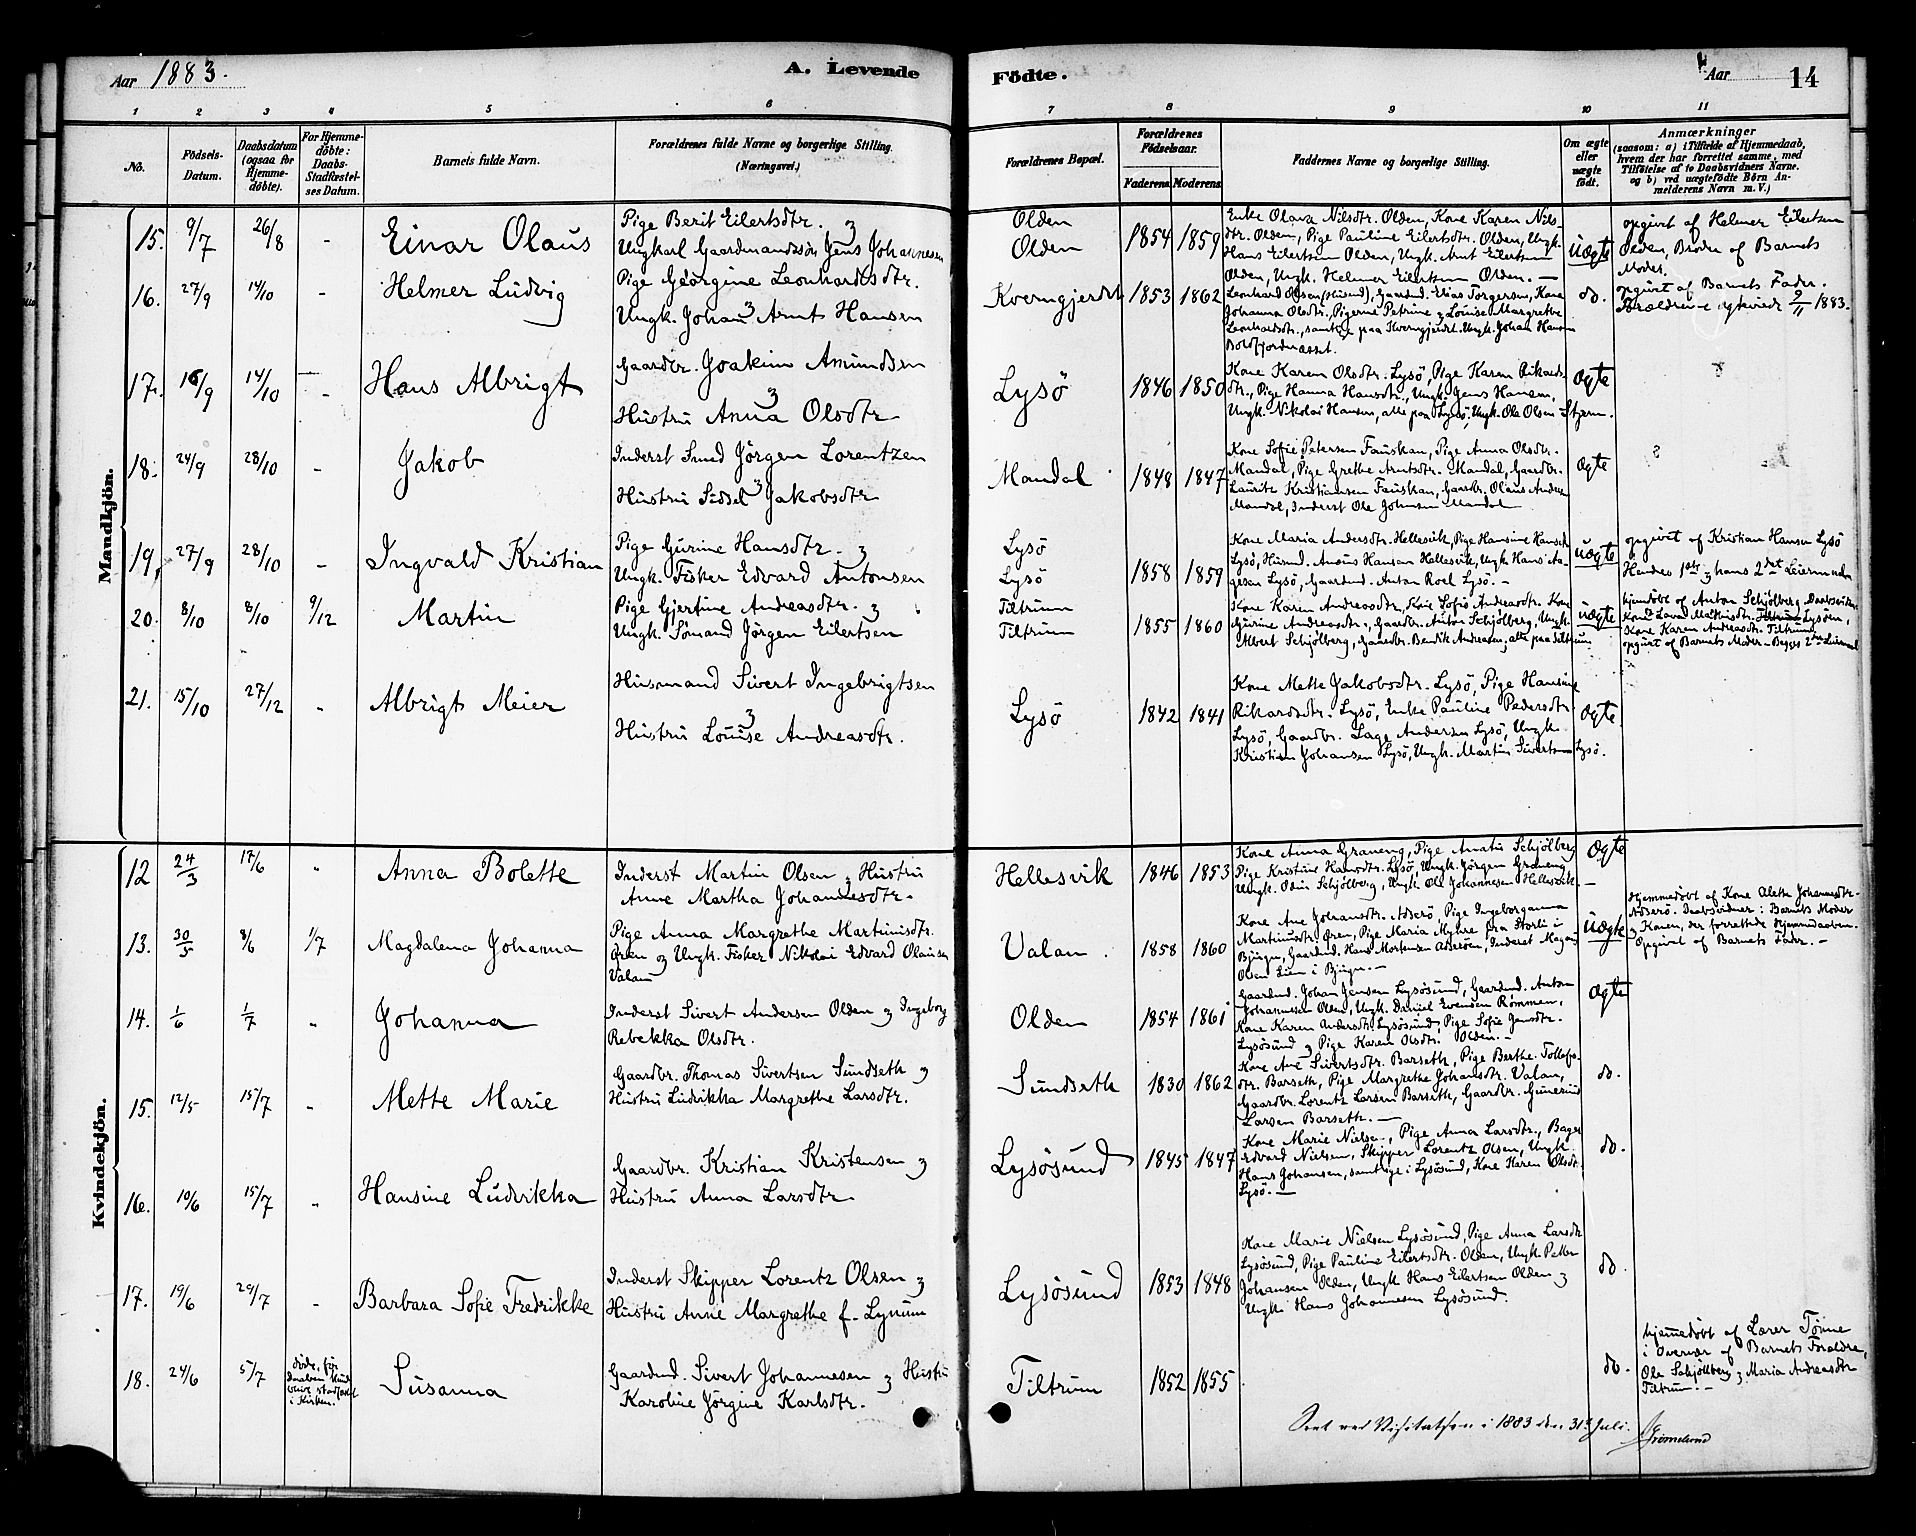 Aar 1883.
A. Levende
Födte.
Aar
14
1 2 3 4 5 6 7 8 9 10 11
No.
Födsels-Datum.
Daabsdatum (ogsaa for Hjemmedöbte).
For Hjemmedöbte: Daabs-Stadfæstelses Datum.
Barnets fulde Navn.
Forældrenes fulde Navne og borgerlige Stilling. (Næringsvei.)
Forældrenes Bopæl.
Forældrenes Födselsaar.
Faderens Moderens
Faddernes Navne og borgerlige Stilling.
Om ægte eller uægte födt.
Anmærkninger
(saasom: a) i Tilfælde af Hjemmedaab, hvem der har forrettet samme, med Tilföielse af to Daabsvidners Navne. og b) ved uægtefödte Börn Anmelderens Navn m. V.)
Mandkjön.
15. 9/7 26/8 - Einar Olaus
Pige Berit Eilertsdtr. &
Ungkarl Gaardmandssön Jens Johannesen
Olden
Olden
1854 1859
Enke Olava Nilsdtr. Olden, Kone Karen Nils-
dtr. Olden, Pige Pauline Eilertsdtr. Olden, Ungk.
Hans Eilertsen Olden, Ungk. Arnt Eilertsen
Olden, Ungk. Helmer Eilertsen Olden. -
Uægte
opgivet af Helmer Eilertsen
Olden, Broder af Barnets
Moder.
16. 27/9 14/10 - Helmer Ludvig
Pige Georgine Leonhardsdtr.
& Ungk. Johan Arnt Hansen
Kverngjerdet
1853 1862
Leonhard Olsen (Husmd), Gaardmd. Elias Torgersen, Kone
Johanna Olsdtr., Pigerne Petrine & Louise Margrethe
Leonhardsdtr., samtlige paa Kverngjerdet. Ungk. Johan Hansen
do.
opgivet af Barnets Fader.
Forældrene ægteviede 9/11 1883.
17. 16/9 14/10 - Hans Albrigt
Gaardbr. Joakim Amundsen
&
Hustru Anna Olsdtr
Lysö
1846 1850
Kone Karen Olsdtr. Lysö, Pige Karen Rikards-
dtr., Pige Hanna Hansdtr., Ungk. Jens Hansen,
Ungk. Nikolai Hansen, alle paa Lysö, Ungk. Ole Olsen Stjern.
Ægte
18. 24/9 28/10 - Jakob
Inderst Smed Jörgen Lorentzen
&
Hustru Sidsel Jakobsdtr
Mandal
1848 1847
Kone Sofie Petersen Fauskan, Pige Anna Olsdtr.
Mandal, Pige Grethe Arntsdtr. Mandal, Gaardbr.
Lauritz Kristiansen Fauskan, Gaardbr. Olaus Andersen
Mandal, Inderst Ole Johnsen Mandal
Ægte
19. 27/9 28/10 - Ingvald Kristian
Pige Gurine Hansdtr. &
Ungk. Fisker Edvard Antonsen
Lysö
Lysö
1858 1859
Kone Maria Andersdtr. Hellesvik, Pige Hansine Hansdtr
Lysö, Husmd. Hansen Hellesvik, Ungk Hans Aa-
gesen Lysö, Gaardmd. Anton Roel Lysö. -
Uægte
opgivet af Kristian Hansen Lysö
Hendes 1ste & hans 2det Leiermaal
20. 8/10 8/10 9/12 Martin
Pige Gjertine Andreasdtr. &
Ungk. Sömand Jörgen Eilertsen
Tiltrum
Tiltrum
1855 1860
Kone Karen Andreasdtr, Kone Sofie Andreasdtr. Kone
Gurine Andreasdtr., Gaardbr. Anton Schjölberg, Ungk.
Albert Schjölberg, Gaardbr. Benrik Andreasen, alle paa Tiltrum
Uægte
hjemdöbt af Anton Schjölberg. Daabsvidne:
Kone Karen Andreasdtr. Tiltrum
opgivet af Barnets Moder - Begges 2det Leiermaal
21. 15/10 27/12 - Albrigt Meier
Husmand Sivert Ingebrigtsen
&
Hustru Louise Andreasdtr.
Lysö
1842 1841
Kone Mette Jakobsdtr. Lysö, Pige Hansine
Rikardsdtr. Lysö, Enke Pauline Pedersdtr
Lysö, Gaardbr. Lage Andersen Lysö, Ungk.
Kristian Johansen Lysö, Ungk. Martin Sivertsen Lysö.
Ægte
Kvindekjön.
12 24/3 17/6 " Anna Bolette
Inderst Martin Olsen & Hustru
Anne Martha Johannesdtr.
Hellesvik
1846 1853
Kone Anna Graneng, Pige Amatie Schjölberg
Pige Kristine Hansdtr. Lysö, Ungk. Jörgen Graneng
Ungk. Odin Schjölberg, Ungk Ole Johannesen Hellesvik. -
Ægte
13. 30/3 8/6 1/7 Magdalena Johanna
Pige Anna Margrethe Martinusdtr.
Ören og Ungk. Fisker Nikolai Edvard Olausen
Valan
Valan.
1858 1860
Kone Ane Johansdtr. Asserö, Pige Ingeborganna
Martinusdtr Ören, Pige Maria Myhre fra Storli i
Bjugn, Gaardmd. Hans Mortensen Asseröen, Inderst Magnus
Olsen Eien i Bjugn. -
Uægte
Hjemmedöbt af Kone Aleth Johannesdtr.
Asserö. Daabsvidner: Barnets Moder
& Konen, der forrettede Hjemmedaaben.
Opgivet af Barnets Fader. -
14. 1/6 1/7 " Johanna
Inderst Sivert Andersen Olden & Ingeborg
Rebekka Olsdtr.
Olden
1854 1861
Gaardmd. Johan Jensen Lysösund, Gaardmd. Anton
Johannesen Olden, Ungk. Daniel Evensen Römmen,
Kone Karen Andersdtr. Lysösund, Pige Sofie Jensdtr.
Lysösund & Pige Karen Olsdtr. Olden. -
Ægte
15. 12/5 15/7 " Mette Marie
Gaardbr. Thomas Sivertsen Sundseth &
Hustru Ludvikka Margrethe Larsdtr.
Sundseth
1830 1862
Kone Ane Sivertsdtr. Barseth, Pige Berthe Tollefs-
dtr. Barseth, Pige Margrethe Johansdtr. Valan,
Gaardbr. Lorentz Larsen Barseth, Gaardbr. Gunerius
Larsen Barseth. -
do.
16. 10/6 15/7 " Hansine Ludvikka
Gaardbr. Kristian Kristensen &
Hustru Anna Larsdtr
Lysösund
1845 1847
Kone Marie Nielsen, Pige Anna Larsdtr., Bager
Edvard Nielsen, Skipper Lorentz Olsen, Ungk.
Hans Johansen, samtlige i Lysösund, Kone Karen Olsdtr.
Lysö. -
do.
17. 19/6 29/7 - Barbara Sofie Fredrikke
Inderst Skipper Lorentz Olsen &
Hustru Anne Margrethe f. Lynum
Lysösund
1853 1848
Kone Marie Nielsen Lysösund, Pige Anna Larsdtr
Lysösund, Pige Pauline Eilertsdtr. Olden, Ungk. Petter
Johansen Olden, Ungk Hans Eilertsen Olden &
Ungk. Hans Johannesen Lysösund.
do.
18. 24/6 5/7 döde, för Daaben kunde blive stadfæstet i Kirken. Susanna
Gaardmd. Sivert Johannesen & Hustru
Karoline Jörgine Karlsdtr.
Tiltrum
1852 1855
do.
hjemmedöbt af Lærer Tönne
i Overvær af Barnets Forældre,
Ole Schjölberg & Maria Andreasdtr
Tiltrum. -
Seet ved Visitatsen i 1883 den 31te Juli.